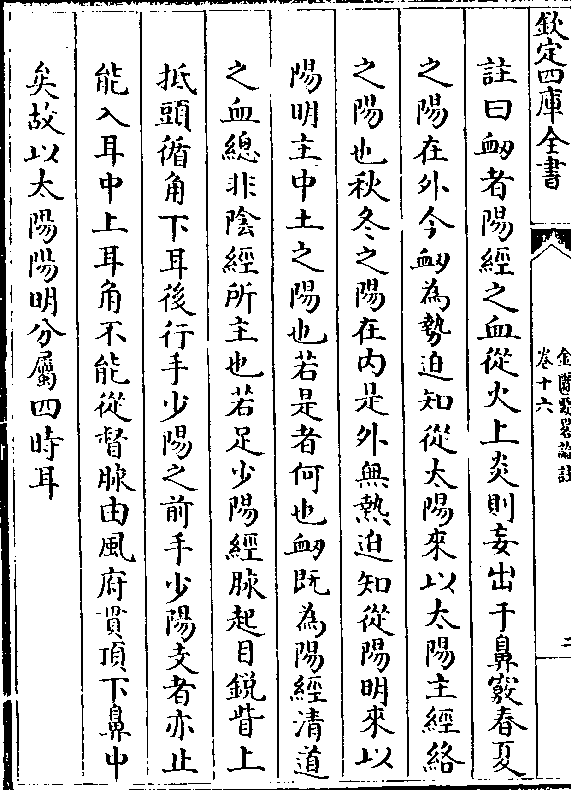 欽定四庫全書
金匱要畧論註
卷十六
二
註曰衂者陽經之血從火上炎則妄出于鼻竅春夏
之陽在外今衂為勢迫知從太陽來以太陽主經絡
之陽也秋冬之陽在内是外無熱迫知從陽明來以
陽明主中土之陽也若是者何也衂既為陽經清道
之血總非陰經所主也若足少陽經脉起目銳眥上
抵頭循角下耳後行手少陽之前手少陽支者亦止
能入耳中上耳角不能從督脉由風府貫項下鼻中
矣故以太陽陽明分屬四時耳